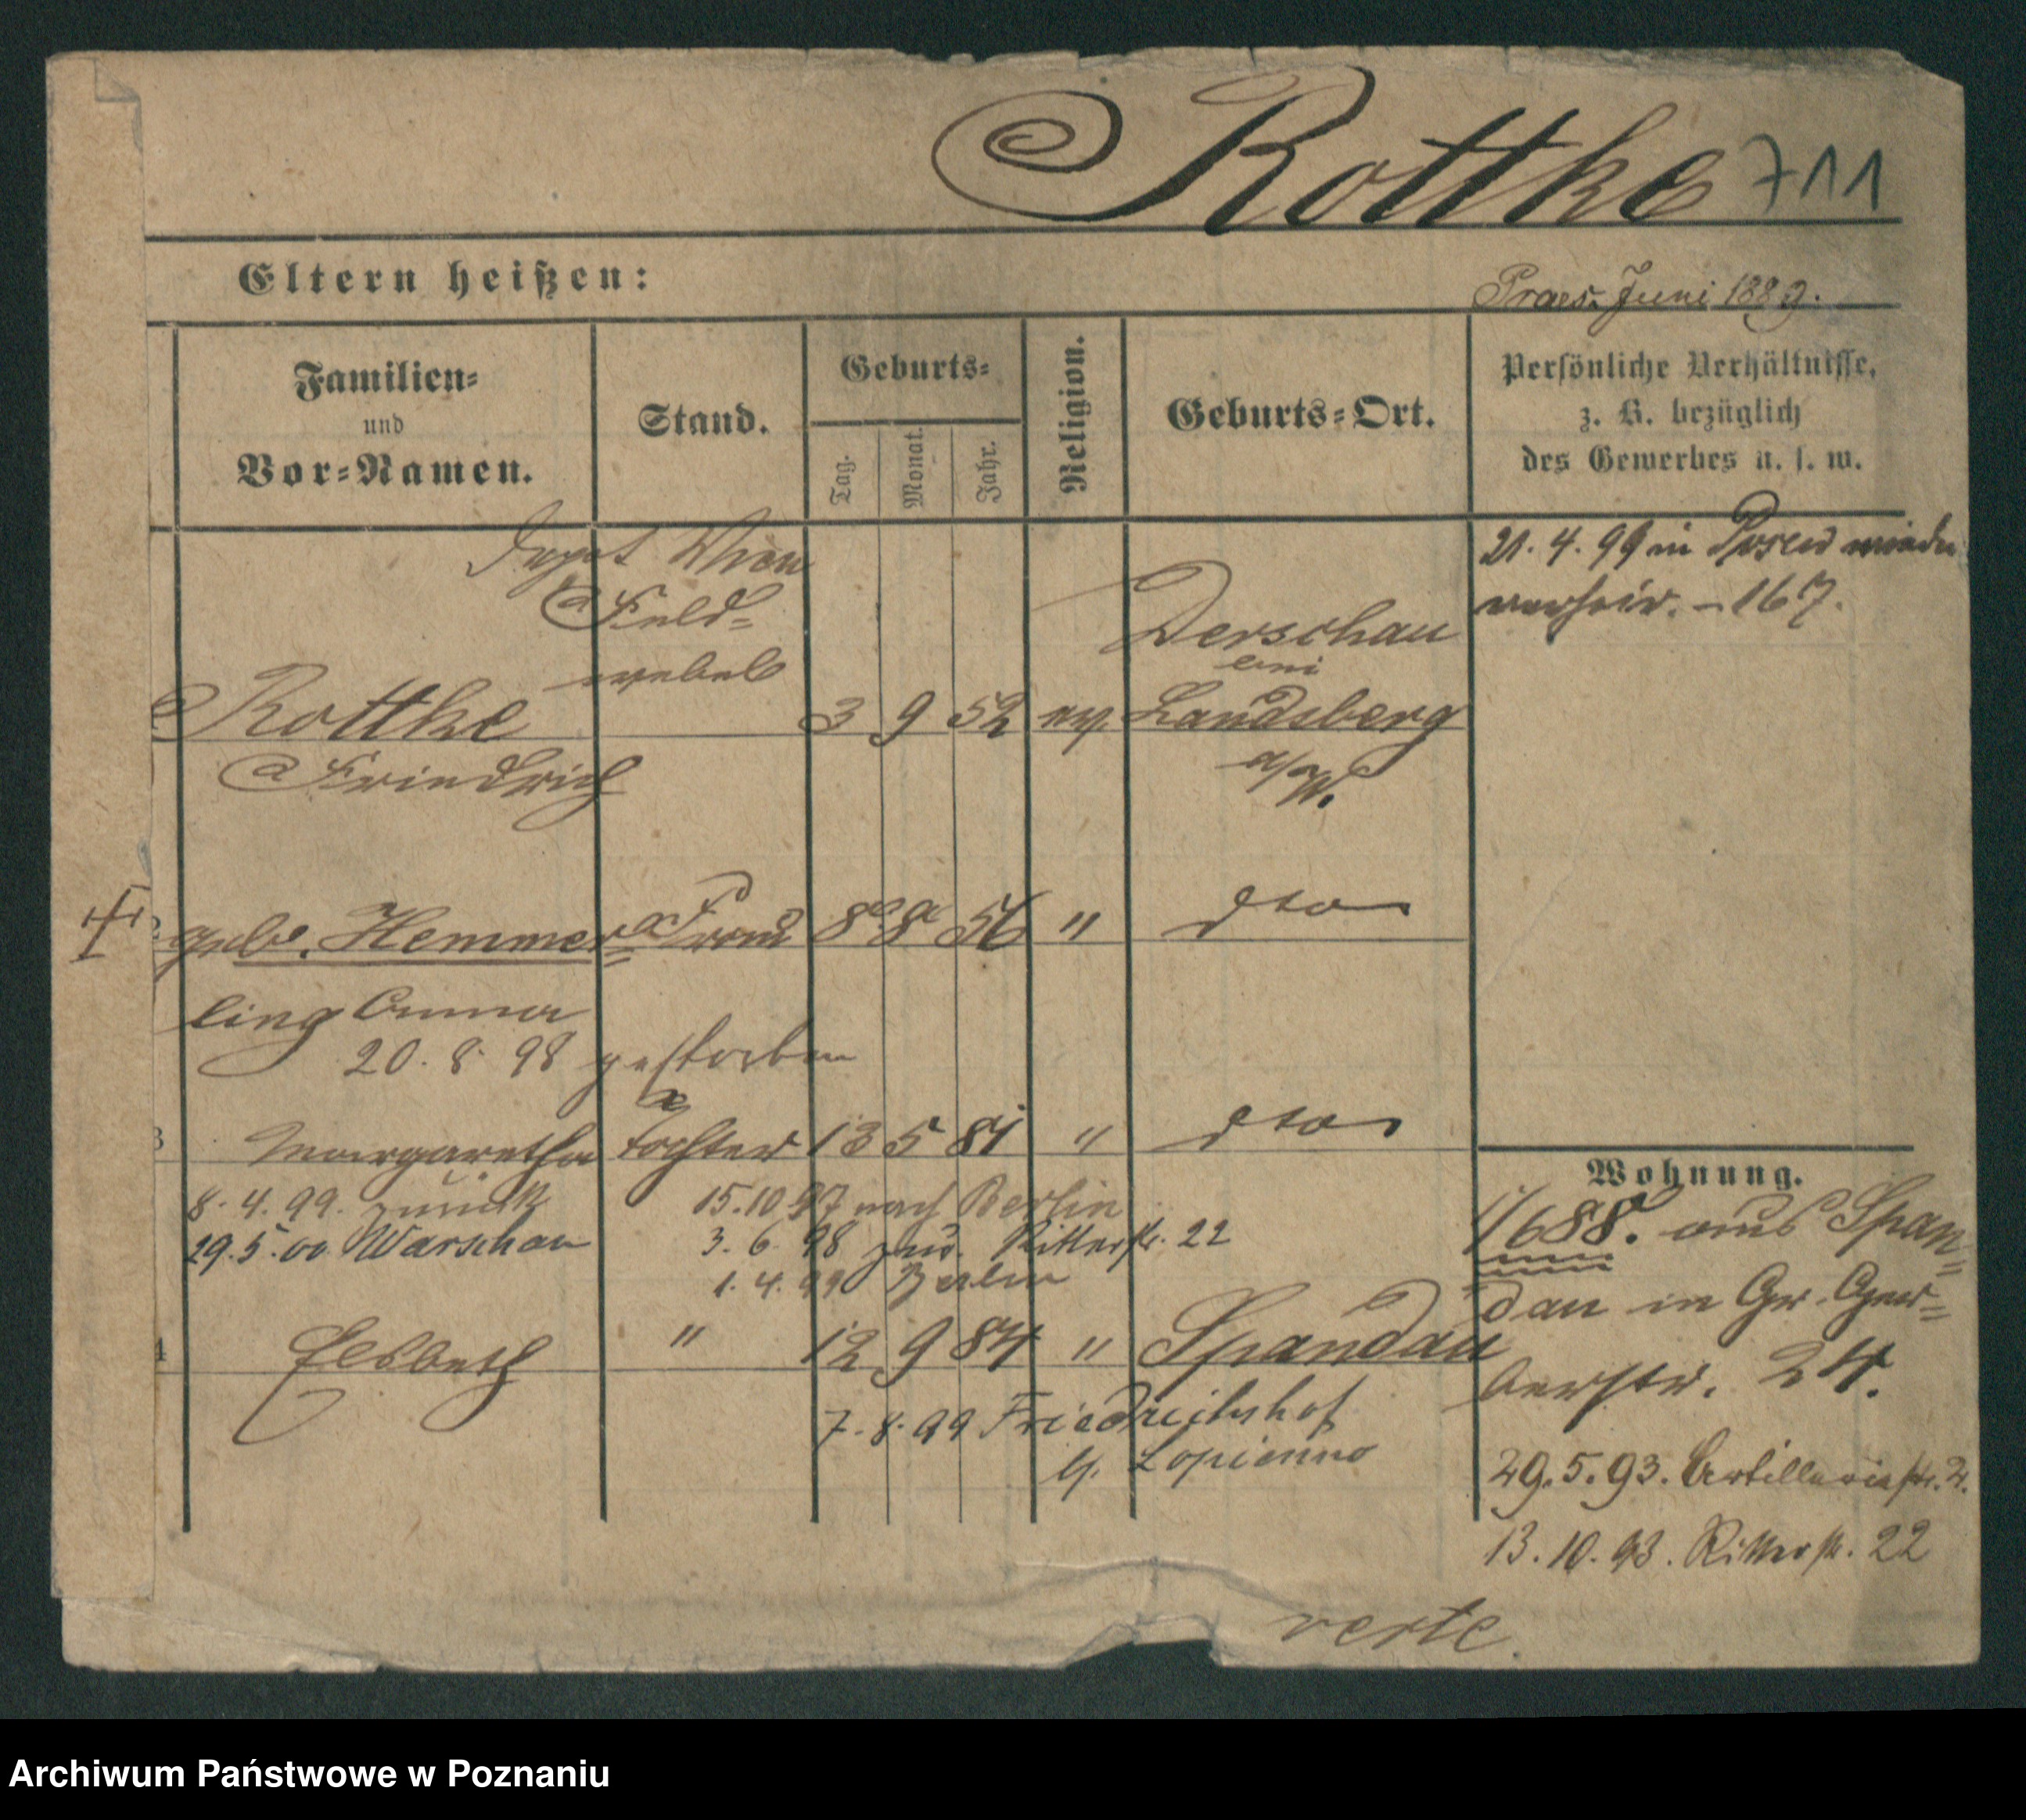 Rottke 711
Eltern heißen:
Praes. Juni 1889.
Familien-
und
Vor-Namen.
Stand.
Geburts-
Tag.
Monat.
Jahr.
Religion.
Geburts-Ort.
Persönliche Verhältnisse,
z. B. bezüglich
des Gewerbes u. s. w.
21. 4. 99 in Posen wieder
verheir. - 167.
Feld-
webel
Derschau
bei
Rottke 3 9 52 ev. Landsberg
Friedrich
a/W.
geb. Hemmer- Frau 8 8 56 " dto
ling Anna
20. 8. 98 gestorben
3 Margaretha Tochter 13 5 81 " dto
8. 4. 99. zurück 15.10 97 nach Berlin
29. 5. 00 Warschau 3. 6 98 zur. Ritterstr. 22
1. 4. 99 Berlin
4 Elsbeth " 12 9 84 " Spandau
7. 8. 99 Friedrichshof
b. Lopienno
Wohnung.
aus Span-
dau in Gr. Ger-
berstr. 24.
29. 5. 93. Artilleriestr. 2.
13. 10. 93. Ritterstr. 22
verte.
Archiwum Państwowe w Poznaniu